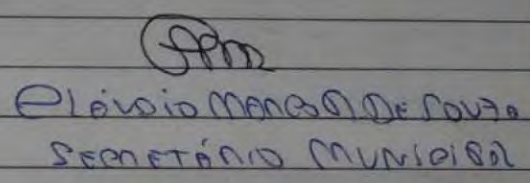 Cláudio MANOEL DE SOUZA
SECRETÁRIO MUNICIPAL